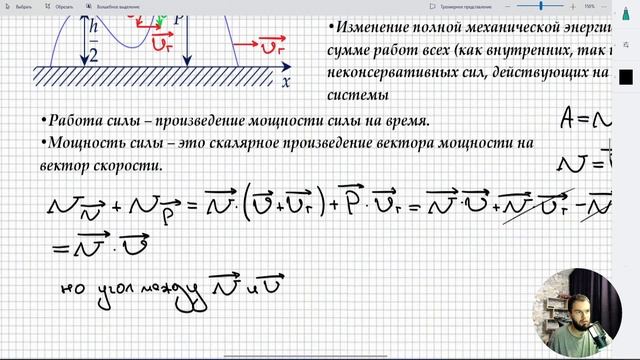 Выбрать Обрезать Волшебное выделение Трехмерное представление 150%
h
2
P
v⃗г
v⃗г
x
•Изменение полной механической энерги
сумме работ всех (как внутренних, так
неконсервативных сил, действующих на
системы
•Работа силы – произведение мощности силы на время.
•Мощность силы – это скалярное произведение вектора мощности на
вектор скорости.
A = N
N =
N_N⃗ + N_P⃗ = N⃗·(v⃗+v⃗г) + P⃗·v⃗г = N⃗·v⃗ + N⃗·v⃗г − N
= N⃗·v⃗
но угол между N⃗ и v⃗